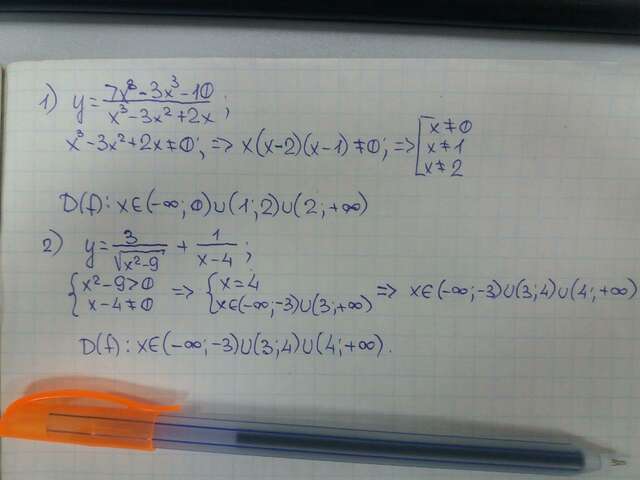 1) y = (7x⁸ - 3x³ - 10)/(x³ - 3x² + 2x);
x³ - 3x² + 2x ≠ 0; => x(x-2)(x-1) ≠ 0; => [x ≠ 0
x ≠ 1
x ≠ 2
D(f): x∈(-∞; 0)∪(1; 2)∪(2; +∞)
2) y = 3/√(x²-9) + 1/(x-4);
{x² - 9 > 0 => {x = 4 => x∈(-∞; -3)∪(3; 4)∪(4; +∞)
x - 4 ≠ 0 x∈(-∞; -3)∪(3; +∞)
D(f): x∈(-∞; -3)∪(3; 4)∪(4; +∞).